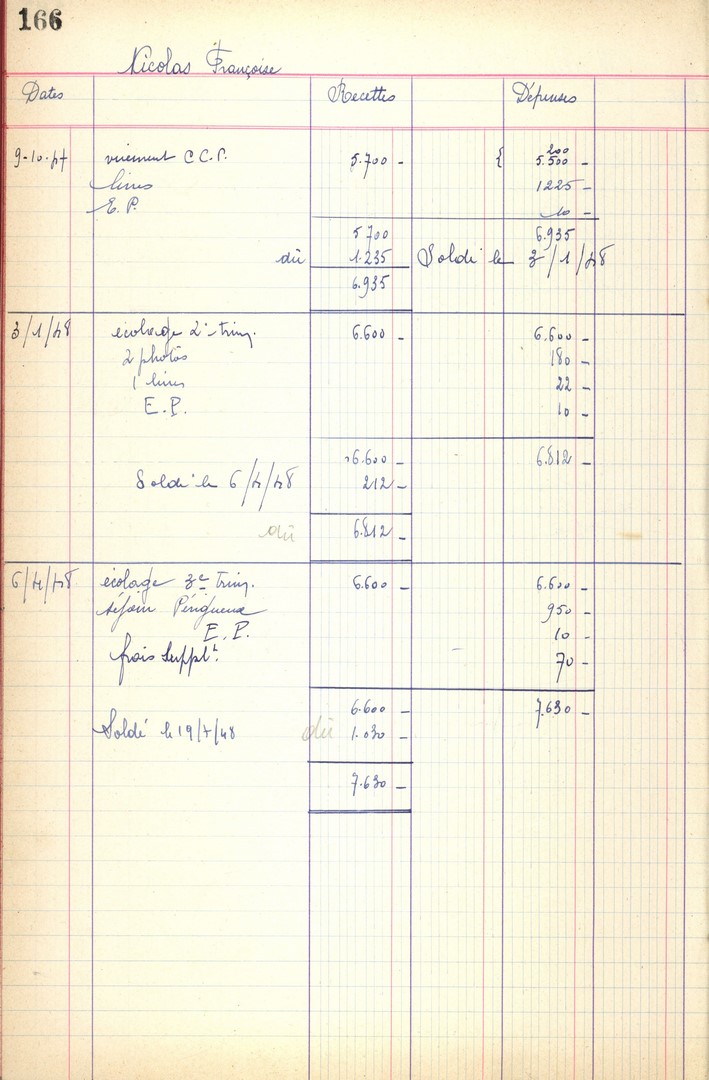 166
Nicolas Françoise
Dates Recettes Dépenses
200
9-10-47 virement C.C.P. 5.700 - { 5.500 -
livres 1225 -
E.P. 10 -
5700 6.935
dû 1.235 Soldé le 3/1/48
6.935
3/1/48 écolage 2e trim. 6.600 - 6.600 -
2 photos 180 -
1 livres 22 -
E.P. 10 -
6.600 - 6.812 -
Soldé le 6/4/48 212 -
dû 6.812 -
6/4/48 écolage 3e trim. 6.600 - 6.600 -
séjour Périgueux 950 -
E.P. 10 -
frais supplt. 70 -
6.600 - 7.630 -
Soldé le 19/7/48 dû 1.030 -
7.630 -